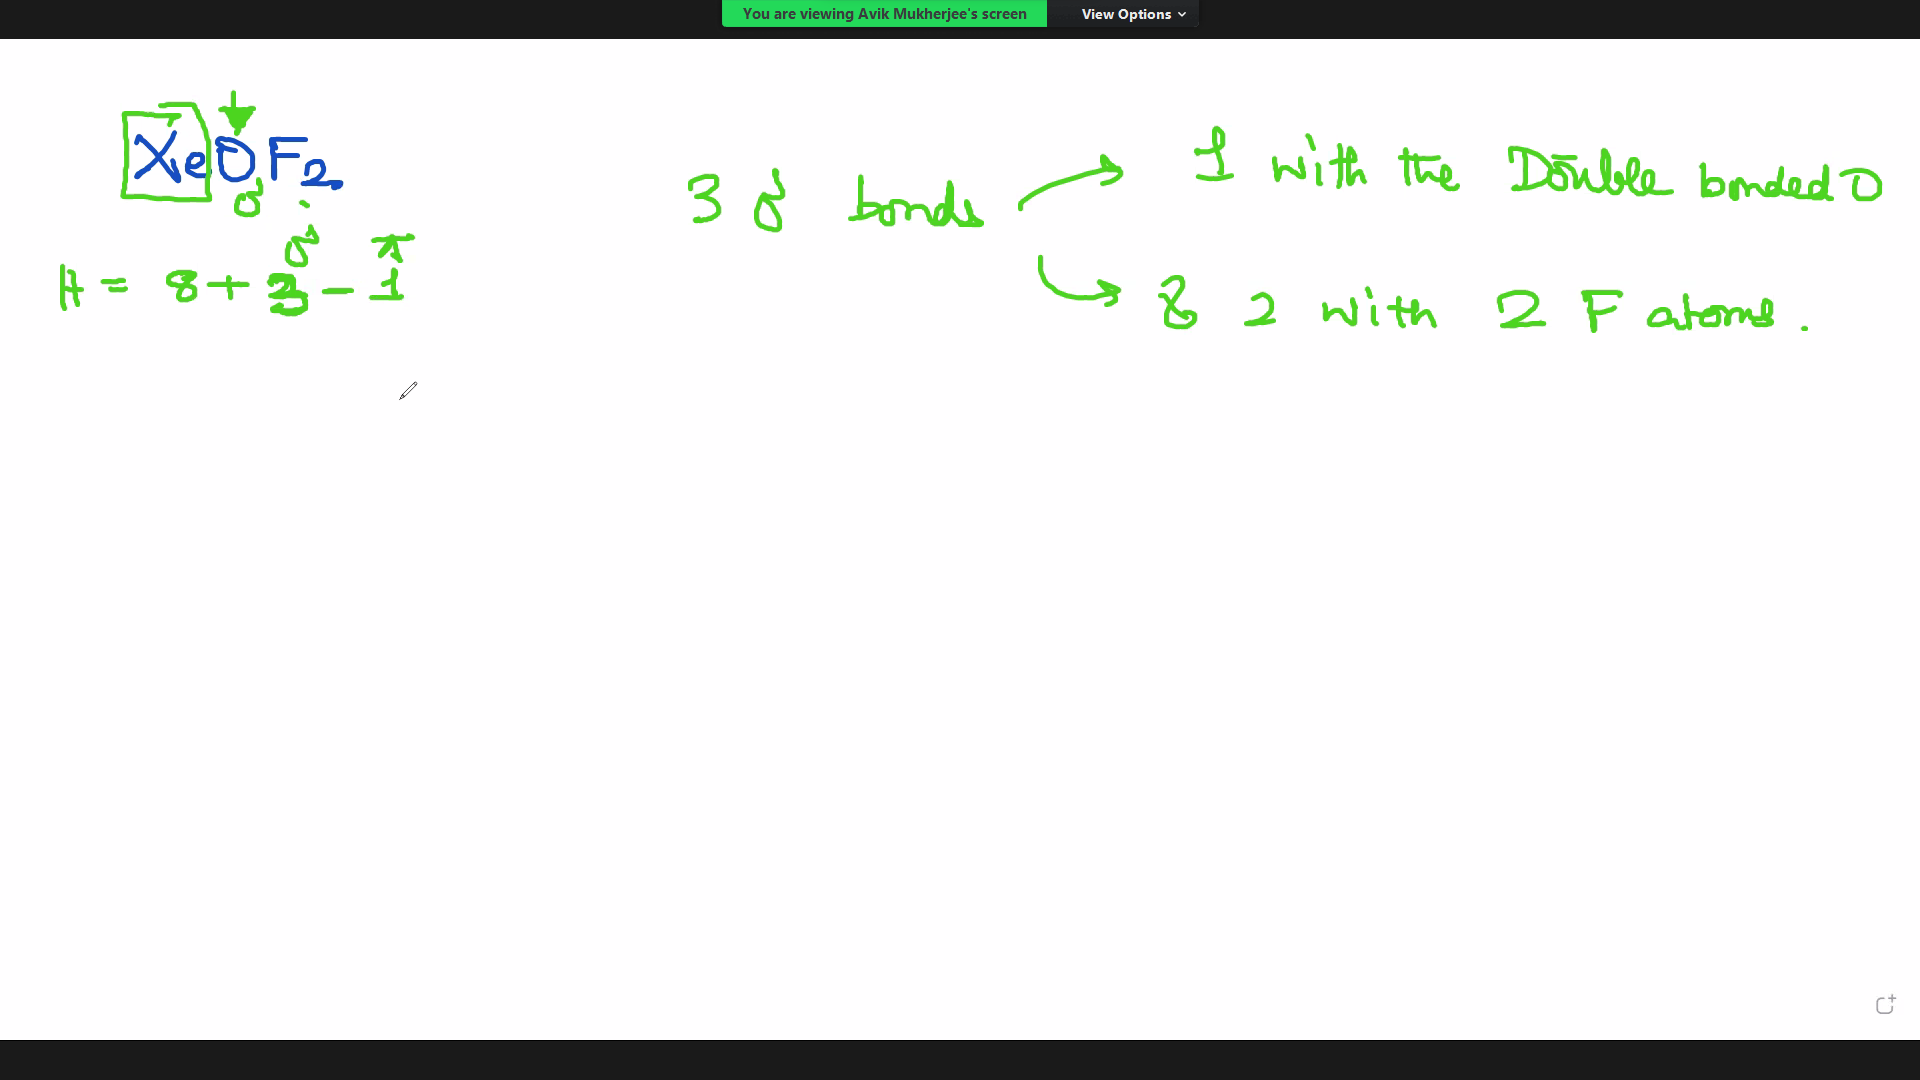 You are viewing Avik Mukherjee's screen View Options
XeOF2
σ
σ π
H = 8 + 3 - 1
3 σ bonds
1 with the Double bonded O
& 2 with 2 F atoms.